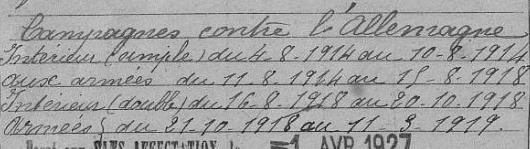 Campagnes contre l'Allemagne
Intérieur (simple) du 4-8-1914 au 10-8-1914
aux armées du 11-8-1914 au 15-8-1918
Intérieur (double) du 16-8-1918 au 20-10-1918
Armées} du 21-10-1918 au 11-3-1919.
SANS AFFECTATION le =1 AVR 1927